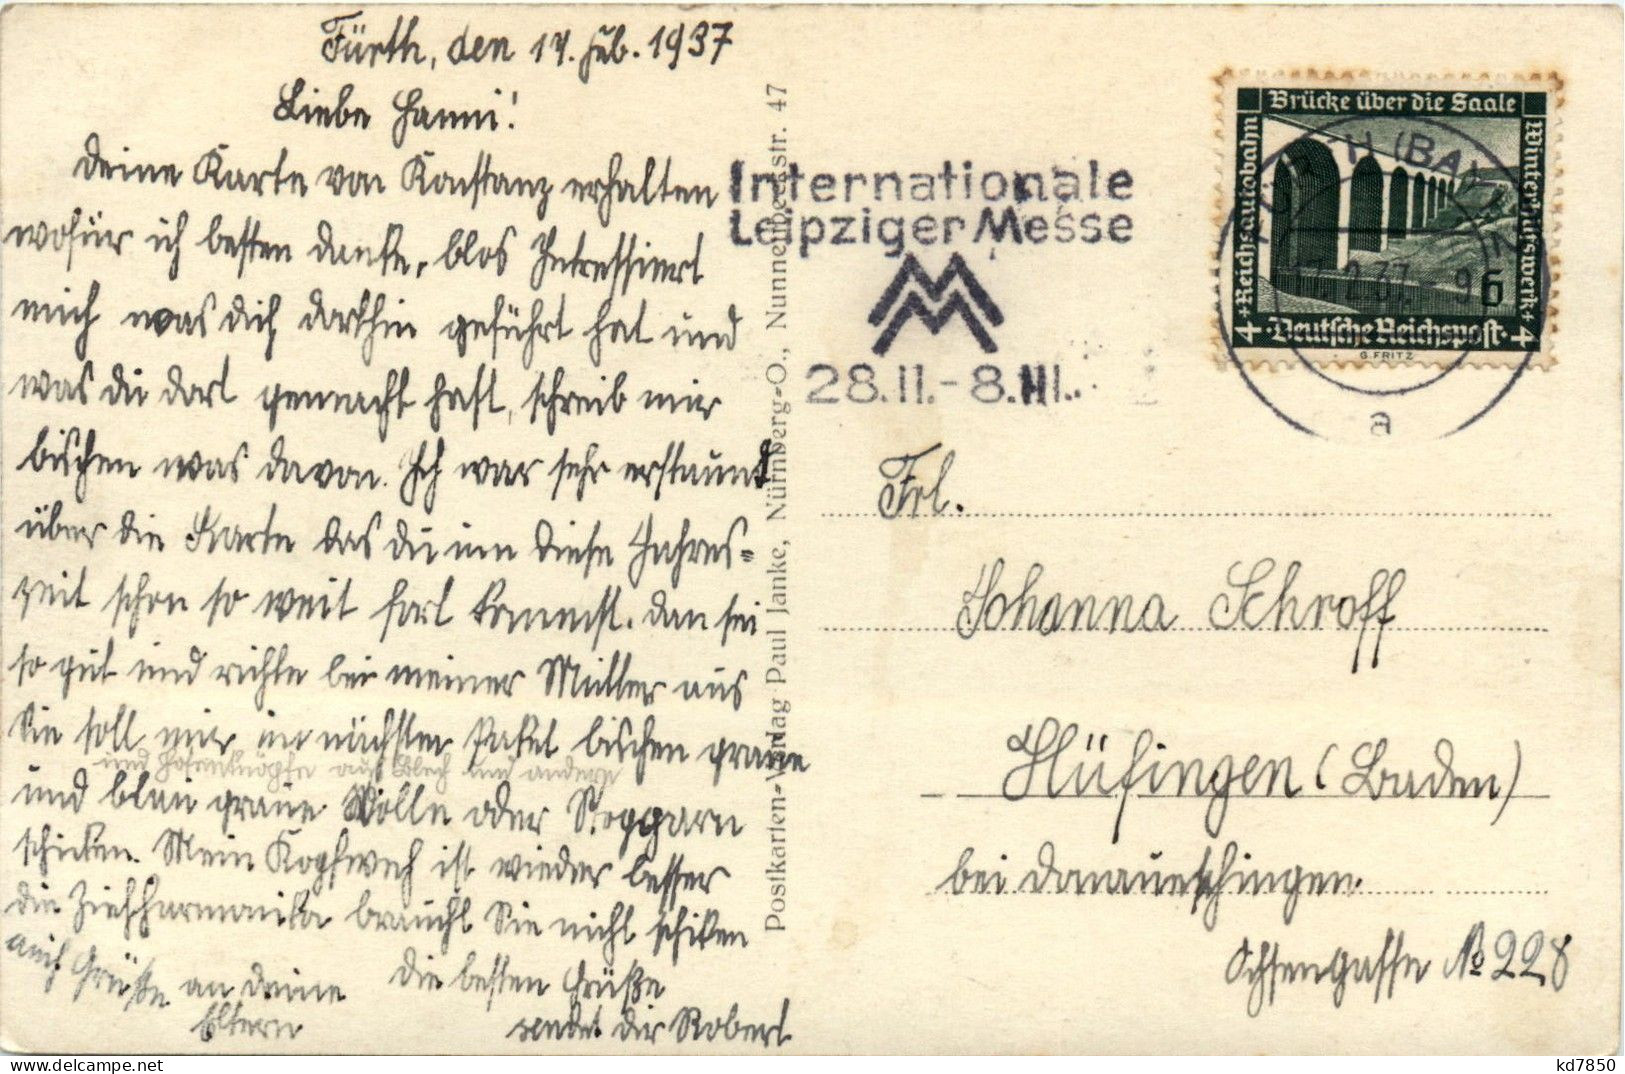 Fürth, den 17. Feb. 1937
Liebe Hanni!
Deine Karte von Konstanz erhalten
wofür ich besten danke, blos Intressiert
mich was dich dorthin geführt hat und
was du dort gemacht hast, schreib mir
bischen was davon. Ich war sehr erstaunt
über die Karte das du um diese Jahres=
zeit schon so weit fort kommst. dan sei
so gut und richte bei meiner Mutter aus
Sie soll mir im nächsten Paket bischen graue
und Hosenknöpfe aus Blech und andere
und blau graue Wolle oder Stopgarn
schicken. Mein Kopfweh ist wieder besser
die Ziehharmonika braucht Sie nicht schiken
auch Grüße an deine
Eltern
die besten Grüße
sendet dir Robert
Postkarten-Verlag Paul Janke, Nürnberg-O., Nunnenbeckstr. 47
Internationale
Leipziger Messe
28.II.-8.III.
Brücke über die Saale
Reichsautobahn
Winterhilfswerk
4 + Deutsche Reichspost + 4
6
G. FRITZ
FÜRTH (BAYERN)
17.2.37.-9
a
Frl.
Johanna Schroff
Hüfingen (Baden)
bei Donaueschingen
Ochsengasse № 228
kd7850